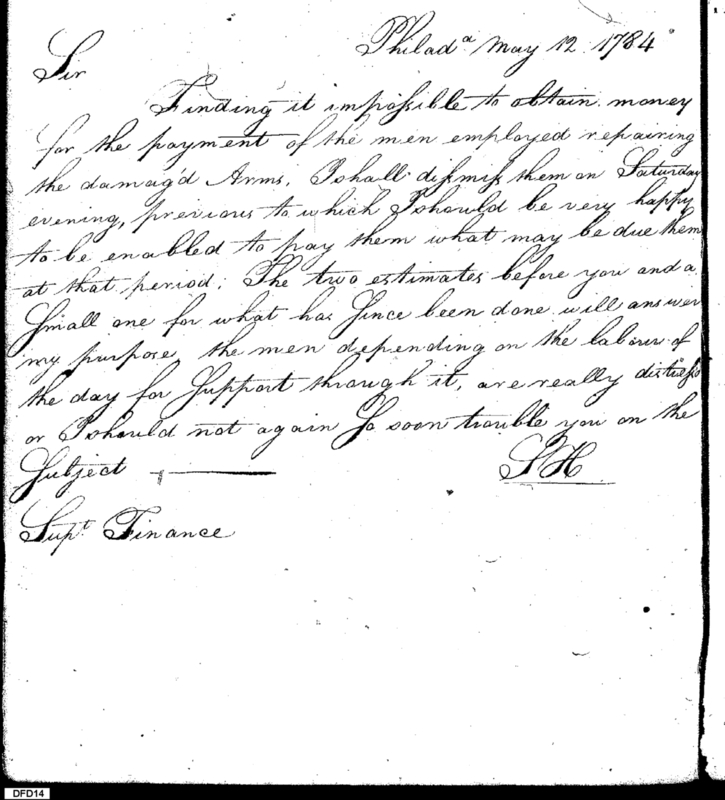 Philad.a May 12 1784
Sir
Finding it impossible to obtain money
for the payment of the men employed repairing
the damag'd Arms, I shall dismiss them on Saturday
evening, previous to which I should be very happy
to be enabled to pay them what may be due them
at that period; The two estimates before you and a
Small one for what has Since been done will answer
my purpose, the men depending on the labour of
the day for Support through it, are really distress'd
or I should not again So soon trouble you on the
Subject
SH
Supt Finance
DFD14